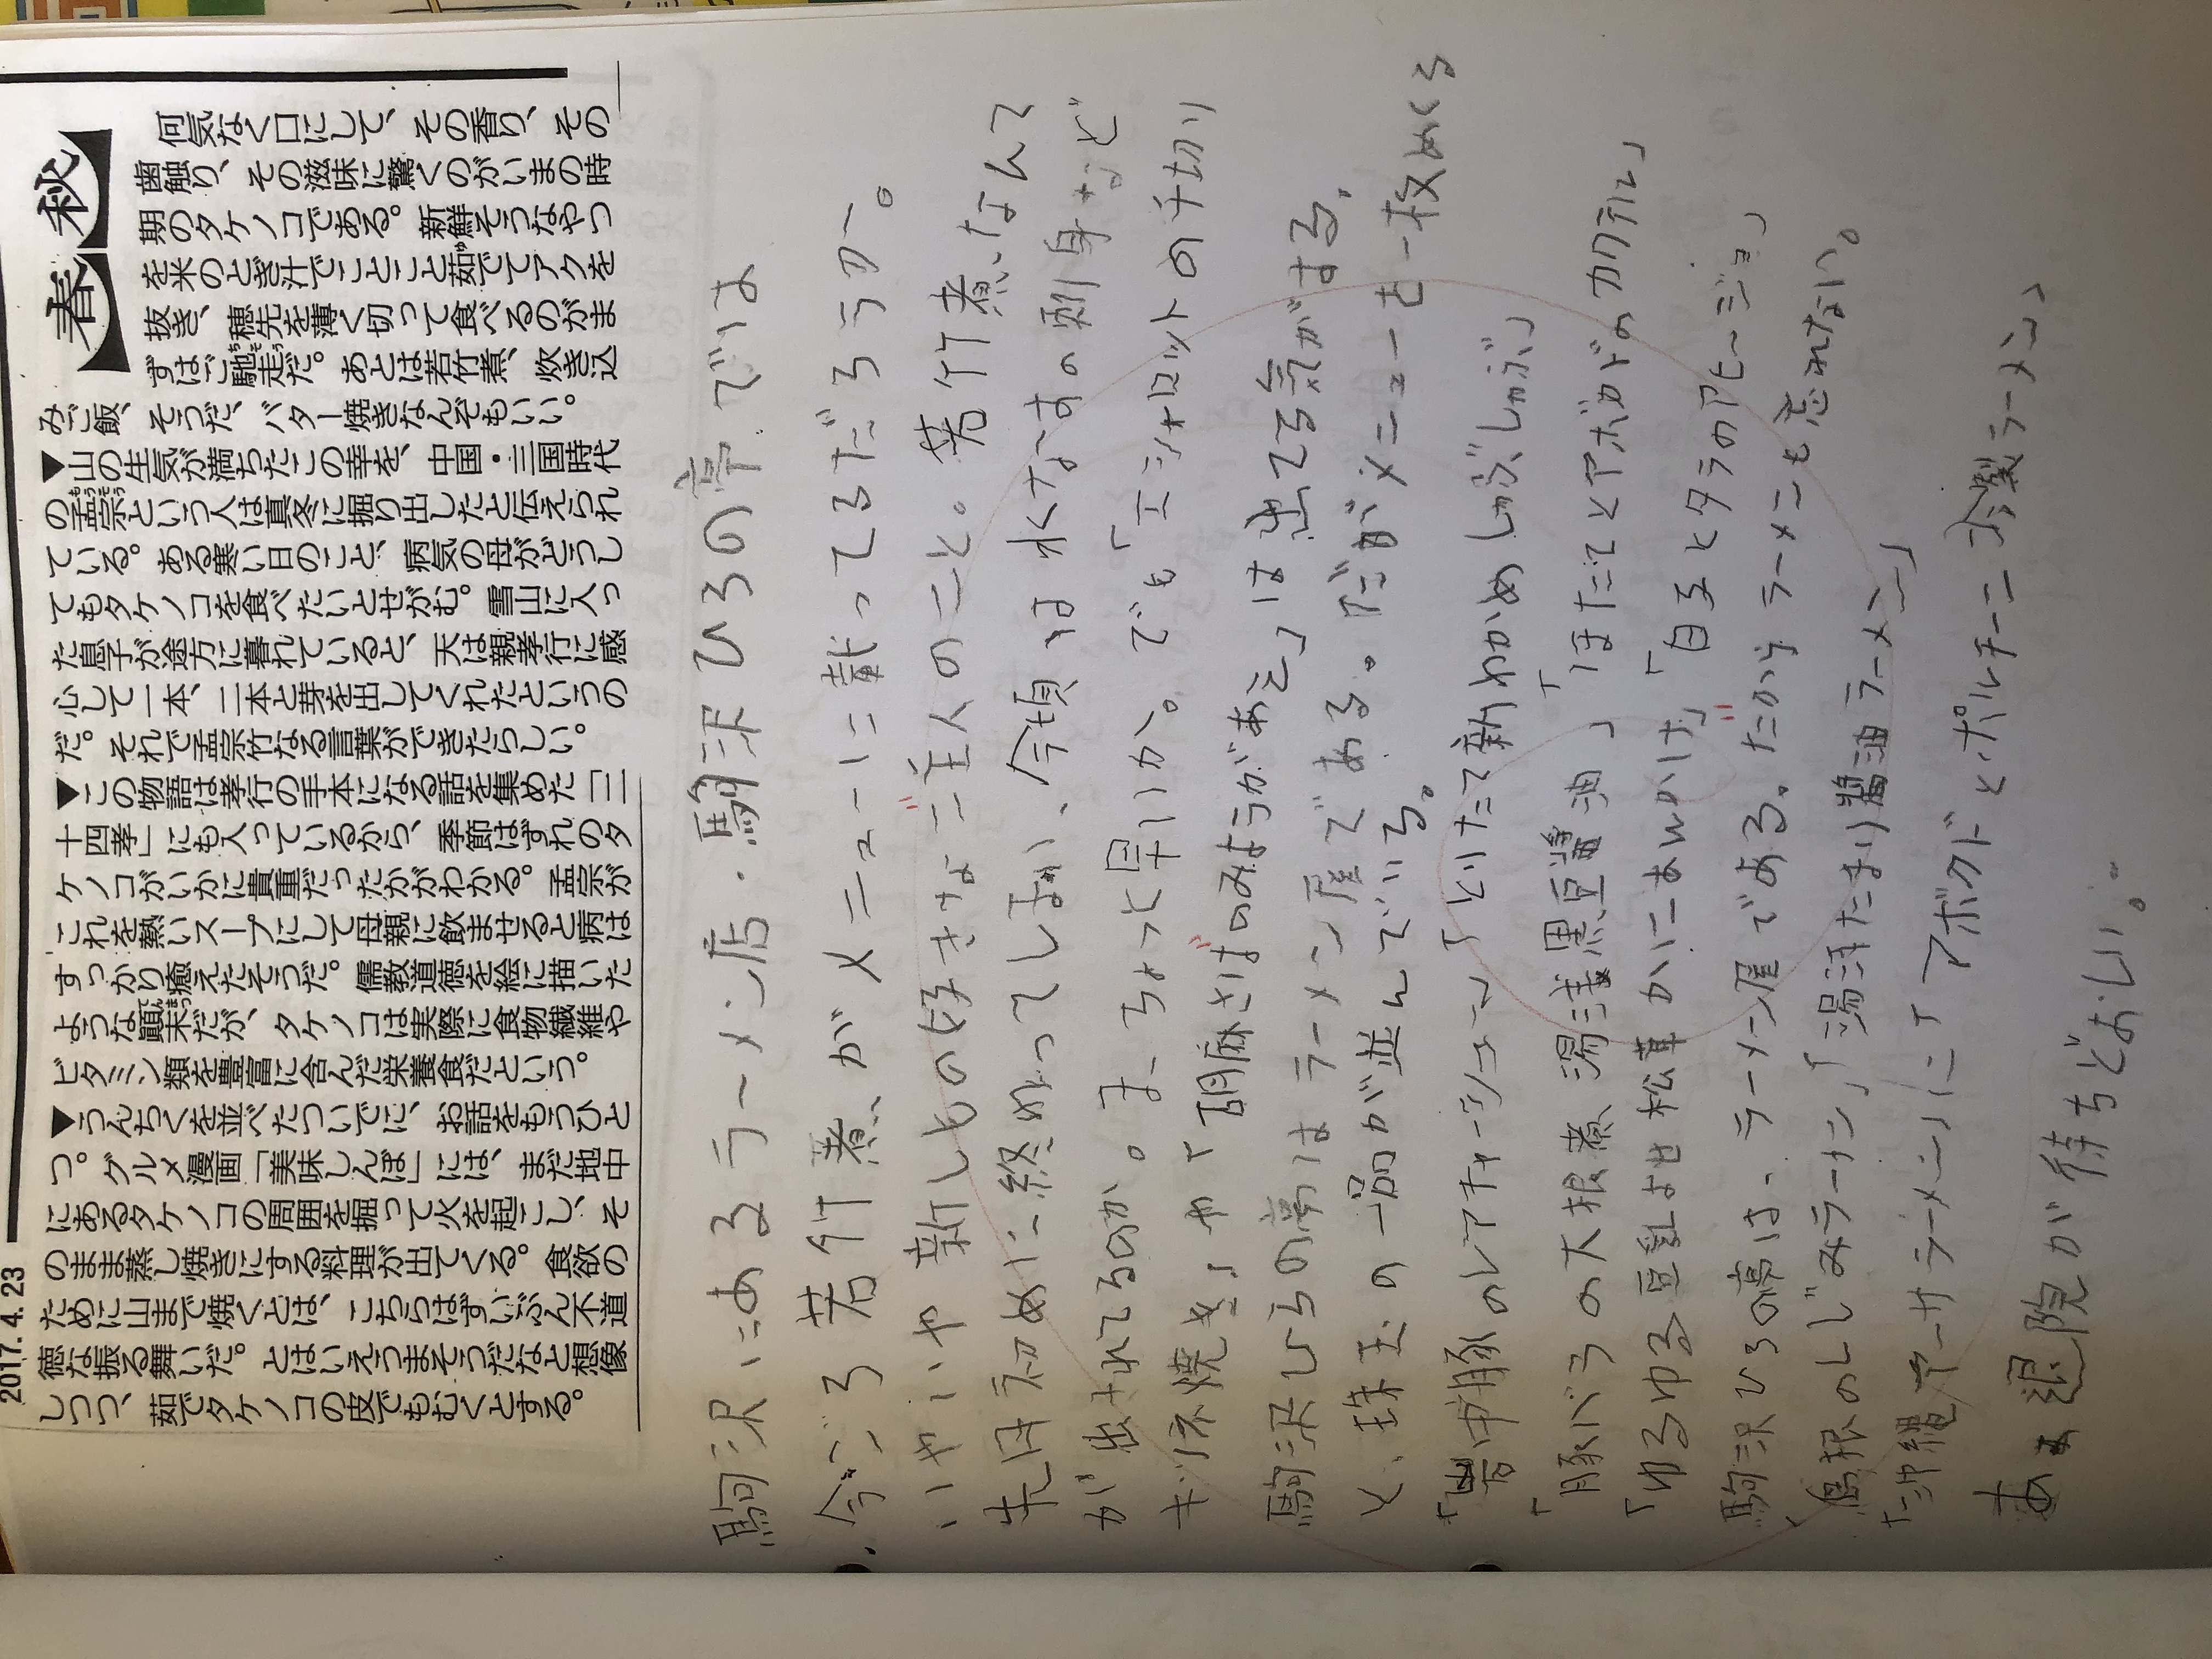 2017. 4. 23
春秋
何気なく口にして、その香り、その
歯触り、その滋味に驚くのがいまの時
期のタケノコである。新鮮そうなやつ
を米のとぎ汁でことこと茹でてアクを
抜き、穂先を薄く切って食べるのがま
ずはご馳走だ。あとは若竹煮、炊き込
みご飯、そうだ、バター焼きなんぞもいい。
▼山の生気が満ちたこの幸を、中国・三国時代
の孟宗という人は真冬に掘り出したと伝えられ
ている。ある寒い日のこと、病気の母がどうし
てもタケノコを食べたいとせがむ。雪山に入っ
た息子が途方に暮れていると、天は親孝行に感
心して一本、二本と芽を出してくれたというの
だ。それで孟宗竹なる言葉ができたらしい。
▼この物語は孝行の手本になる話を集めた「二
十四孝」にも入っているから、季節はずれのタ
ケノコがいかに貴重だったかがわかる。孟宗が
これを熱いスープにして母親に飲ませると病は
すっかり癒えたそうだ。儒教道徳を絵に描いた
ような顚末だが、タケノコは実際に食物繊維や
ビタミン類を豊富に含んだ栄養食だという。
▼うんちくを並べたついでに、お話をもうひと
つ。グルメ漫画「美味しんぼ」には、まだ地中
にあるタケノコの周囲を掘って火を起こし、そ
のまま蒸し焼きにする料理が出てくる。食欲の
ために山まで焼くとは、こちらはずいぶん不道
徳な振る舞いだ。とはいえうまそうだなと想像
しつつ、茹でタケノコの皮でもむくとする。
駒沢にあるラーメン店・駒沢ひろの亭では
今ごろ若竹煮がメニューに載ってるだろうか。
いやいや新しもの好きなご主人のこと。若竹煮なんて
先月初めに終わってしまい、今頃は水なすの刺身など
が出されてるのか。ま、ちょっと早いか。でも「エシャロットの千切り
キツネ焼き」や「胡麻さばのみょうがあえ」は出てる気がする。
駒沢ひろの夢はラーメン屋である。だがメニューを一枚めくる
と、珠玉の一品が並んでいる。
「岩中豚のレアチャーシュー」「とりたて新わかめしゃぶしゃぶ」
「豚バラの大根煮 湯浅黒豆醤油」「ほたてとアボカドのカクテル」
「ゆるゆる豆乳よせ松茸かにあんかけ」「白子とタラのアヒージョ」
駒沢ひろの夢は、ラーメン屋である。だからラーメンも忘れない。
「島根のしじみラーメン」「湯浅たまり醬油ラーメン」
「沖縄アーサラーメン」にアボカドとポルチーニ冷製ラーメン、
あぁ退院が待ちどおしい。